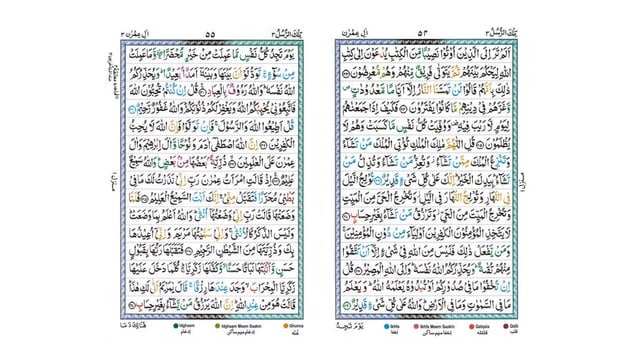 تِلْكَ الرُّسُلُ ٣
٥٤
اٰلِ عِمْرٰن ٣
اَلَمْ تَرَ اِلَى الَّذِيْنَ اُوْتُوْا نَصِيْبًا مِّنَ الْكِتٰبِ يُدْعَوْنَ اِلٰى كِتٰبِ
اللّٰهِ لِيَحْكُمَ بَيْنَهُمْ ثُمَّ يَتَوَلّٰى فَرِيْقٌ مِّنْهُمْ وَهُمْ مُّعْرِضُوْنَ
ذٰلِكَ بِاَنَّهُمْ قَالُوْا لَنْ تَمَسَّنَا النَّارُ اِلَّاۤ اَيَّامًا مَّعْدُوْدٰتٍ
وَّغَرَّهُمْ فِيْ دِيْنِهِمْ مَّا كَانُوْا يَفْتَرُوْنَ فَكَيْفَ اِذَا جَمَعْنٰهُمْ
لِيَوْمٍ لَّا رَيْبَ فِيْهِ وَوُفِّيَتْ كُلُّ نَفْسٍ مَّا كَسَبَتْ وَهُمْ لَا
يُظْلَمُوْنَ قُلِ اللّٰهُمَّ مٰلِكَ الْمُلْكِ تُؤْتِي الْمُلْكَ مَنْ تَشَآءُ
وَتَنْزِعُ الْمُلْكَ مِمَّنْ تَشَآءُ وَتُعِزُّ مَنْ تَشَآءُ وَتُذِلُّ مَنْ
تَشَآءُ بِيَدِكَ الْخَيْرُ اِنَّكَ عَلٰى كُلِّ شَيْءٍ قَدِيْرٌ تُوْلِجُ الَّيْلَ
فِي النَّهَارِ وَتُوْلِجُ النَّهَارَ فِي الَّيْلِ وَتُخْرِجُ الْحَيَّ مِنَ
الْمَيِّتِ وَتُخْرِجُ الْمَيِّتَ مِنَ الْحَيِّ وَتَرْزُقُ مَنْ تَشَآءُ بِغَيْرِ حِسَابٍ
لَا يَتَّخِذِ الْمُؤْمِنُوْنَ الْكٰفِرِيْنَ اَوْلِيَآءَ مِنْ دُوْنِ الْمُؤْمِنِيْنَ
وَمَنْ يَّفْعَلْ ذٰلِكَ فَلَيْسَ مِنَ اللّٰهِ فِيْ شَيْءٍ اِلَّاۤ اَنْ تَتَّقُوْا
مِنْهُمْ تُقٰىةً وَيُحَذِّرُكُمُ اللّٰهُ نَفْسَهٗ وَاِلَى اللّٰهِ الْمَصِيْرُ قُلْ
اِنْ تُخْفُوْا مَا فِيْ صُدُوْرِكُمْ اَوْ تُبْدُوْهُ يَعْلَمْهُ اللّٰهُ وَيَعْلَمُ
مَا فِي السَّمٰوٰتِ وَمَا فِي الْاَرْضِ وَاللّٰهُ عَلٰى كُلِّ شَيْءٍ قَدِيْرٌ
يَوْمَ تَجِدُ
Ikhfa
Ikhfa Meem Saakin
Qalqala
Qalb
اخفا
اخفا میم ساکن
قلقلہ
قلب
تِلْكَ الرُّسُلُ ٣
٥٥
اٰلِ عِمْرٰن ٣
يَوْمَ تَجِدُ كُلُّ نَفْسٍ مَّا عَمِلَتْ مِنْ خَيْرٍ مُّحْضَرًا وَّمَا عَمِلَتْ
مِنْ سُوْٓءٍ تَوَدُّ لَوْ اَنَّ بَيْنَهَا وَبَيْنَهٗۤ اَمَدًۢا بَعِيْدًا وَيُحَذِّرُكُمُ
اللّٰهُ نَفْسَهٗ وَاللّٰهُ رَءُوْفٌۢ بِالْعِبَادِ قُلْ اِنْ كُنْتُمْ تُحِبُّوْنَ اللّٰهَ
فَاتَّبِعُوْنِيْ يُحْبِبْكُمُ اللّٰهُ وَيَغْفِرْ لَكُمْ ذُنُوْبَكُمْ وَاللّٰهُ غَفُوْرٌ رَّحِيْمٌ
قُلْ اَطِيْعُوا اللّٰهَ وَالرَّسُوْلَ فَاِنْ تَوَلَّوْا فَاِنَّ اللّٰهَ لَا يُحِبُّ
الْكٰفِرِيْنَ اِنَّ اللّٰهَ اصْطَفٰۤى اٰدَمَ وَنُوْحًا وَّاٰلَ اِبْرٰهِيْمَ وَاٰلَ
عِمْرٰنَ عَلَى الْعٰلَمِيْنَ ذُرِّيَّةًۢ بَعْضُهَا مِنْۢ بَعْضٍ وَاللّٰهُ سَمِيْعٌ
عَلِيْمٌ اِذْ قَالَتِ امْرَاَتُ عِمْرٰنَ رَبِّ اِنِّيْ نَذَرْتُ لَكَ مَا فِيْ
بَطْنِيْ مُحَرَّرًا فَتَقَبَّلْ مِنِّيْ اِنَّكَ اَنْتَ السَّمِيْعُ الْعَلِيْمُ فَلَمَّا
وَضَعَتْهَا قَالَتْ رَبِّ اِنِّيْ وَضَعْتُهَاۤ اُنْثٰى وَاللّٰهُ اَعْلَمُ بِمَا وَضَعَتْ
وَلَيْسَ الذَّكَرُ كَالْاُنْثٰى وَاِنِّيْ سَمَّيْتُهَا مَرْيَمَ وَاِنِّيْۤ اُعِيْذُهَا
بِكَ وَذُرِّيَّتَهَا مِنَ الشَّيْطٰنِ الرَّجِيْمِ فَتَقَبَّلَهَا رَبُّهَا بِقَبُوْلٍ
حَسَنٍ وَّاَنْۢبَتَهَا نَبَاتًا حَسَنًا وَّكَفَّلَهَا زَكَرِيَّا كُلَّمَا دَخَلَ عَلَيْهَا
زَكَرِيَّا الْمِحْرَابَ وَجَدَ عِنْدَهَا رِزْقًا قَالَ يٰمَرْيَمُ اَنّٰى لَكِ هٰذَا
قَالَتْ هُوَ مِنْ عِنْدِ اللّٰهِ اِنَّ اللّٰهَ يَرْزُقُ مَنْ يَّشَآءُ بِغَيْرِ حِسَابٍ
Idghaam
Idghaam Meem Saakin
Ghunna
ادغام
ادغام میم ساکن
غنّہ